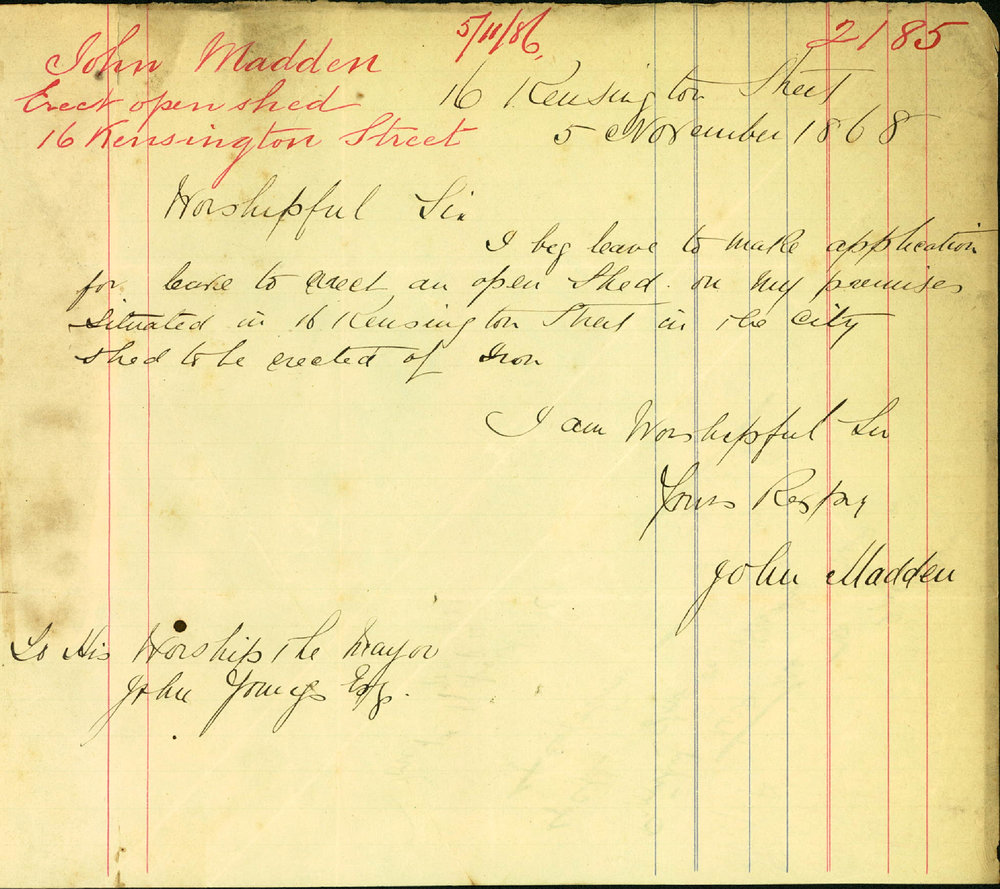 John Madden
Erect open shed
16 Kensington Street
5/11/86,
2185
16 Kensington Street
5 November 1868
Worshipful Sir
I beg leave to make application
for leave to erect an open Shed on my premises
Situated in 16 Kensington Street in the City
Shed to be erected of Iron
I am Worshipful Sir
Yours Respy
John Madden
To His Worship the Mayor
John Youngs Esq.